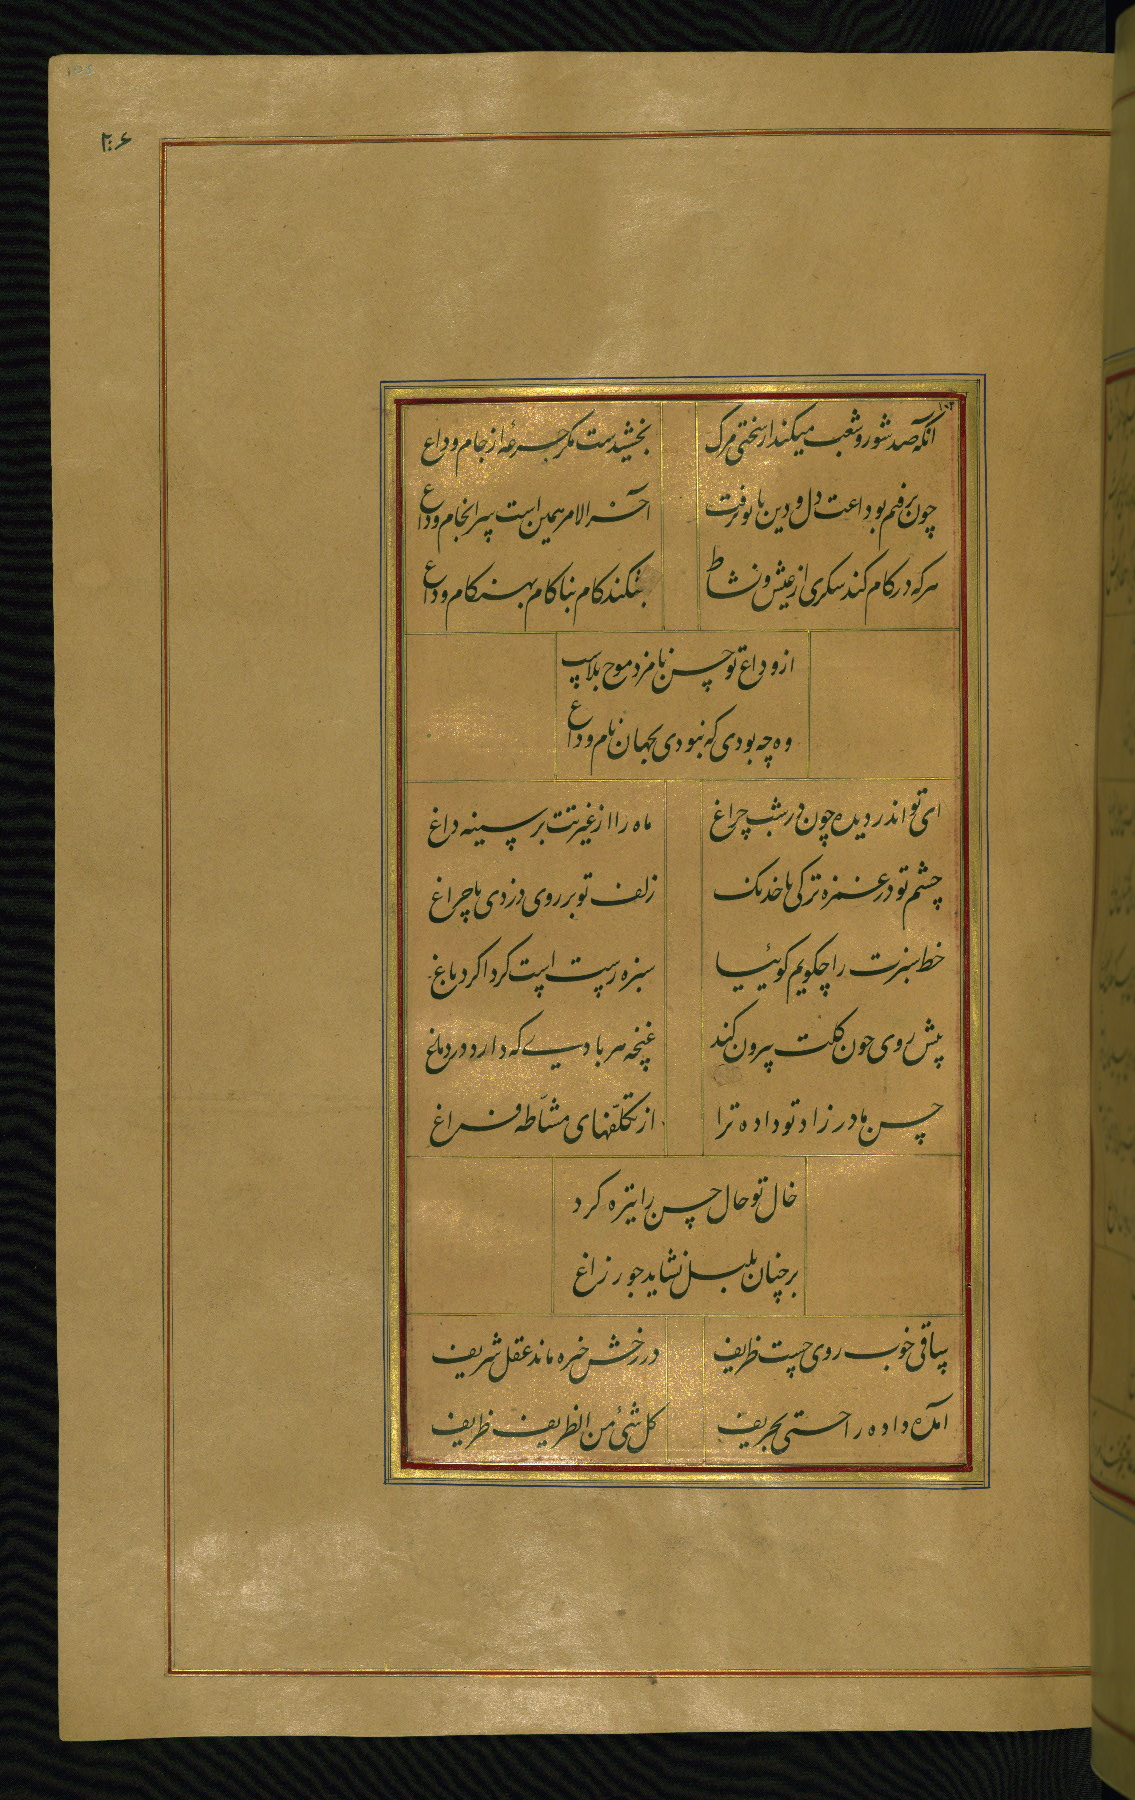 ۲۰۶
۱۰۳
انکه صد شور و شعب میکند از سختی مرک بخشیدست مکر جرعهٔ از جام وداع
چون برفتم بوداعت دل و دین با تو برفت آخر الامر همین است سرانجام وداع
هرکه در کام کند شکری از عیش و نشاط بفکند کام بناکام بهنکام وداع
از وداع تو حسن نامزد موج بلاست
وه چه بودی که نبودی بجهان نام وداع
ای تو اندر دیده چون در شب چراغ ماه را از غیرتت بر سینه داغ
چشم تو در غمزه ترکی با خدنک زلف تو بر روی دزدی با چراغ
خط سبزت را چکویم کوئیا سبزه رست است کرداکرد باغ
پیش روی چون کلت بیرون کند غنچه هر بادی که دارد در دماغ
حسن مادر زاد تو داده ترا از تکلّفهای مشّاطه فراغ
خال تو حال حسن را تیره کرد
بر چنان بلبل نشاید جور زاغ
ساقی خوب روی چست ظریف در رخش خیره ماند عقل شریف
آمده داده راحتی بحریف کل شئ من الظریف ظریف